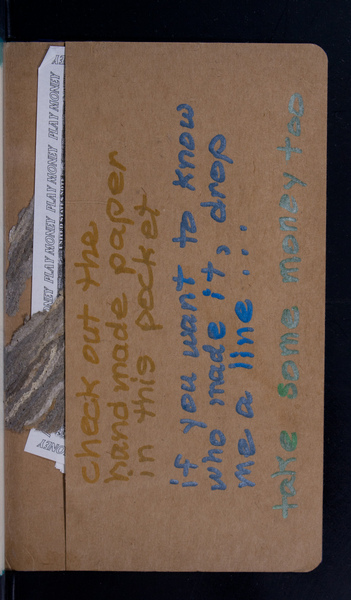 check out the
handmade paper
in this pocket
if you want to know
who made it, drop
me a line ...
take some money too
PLAY MONEY PLAY MONEY PLAY MONEY